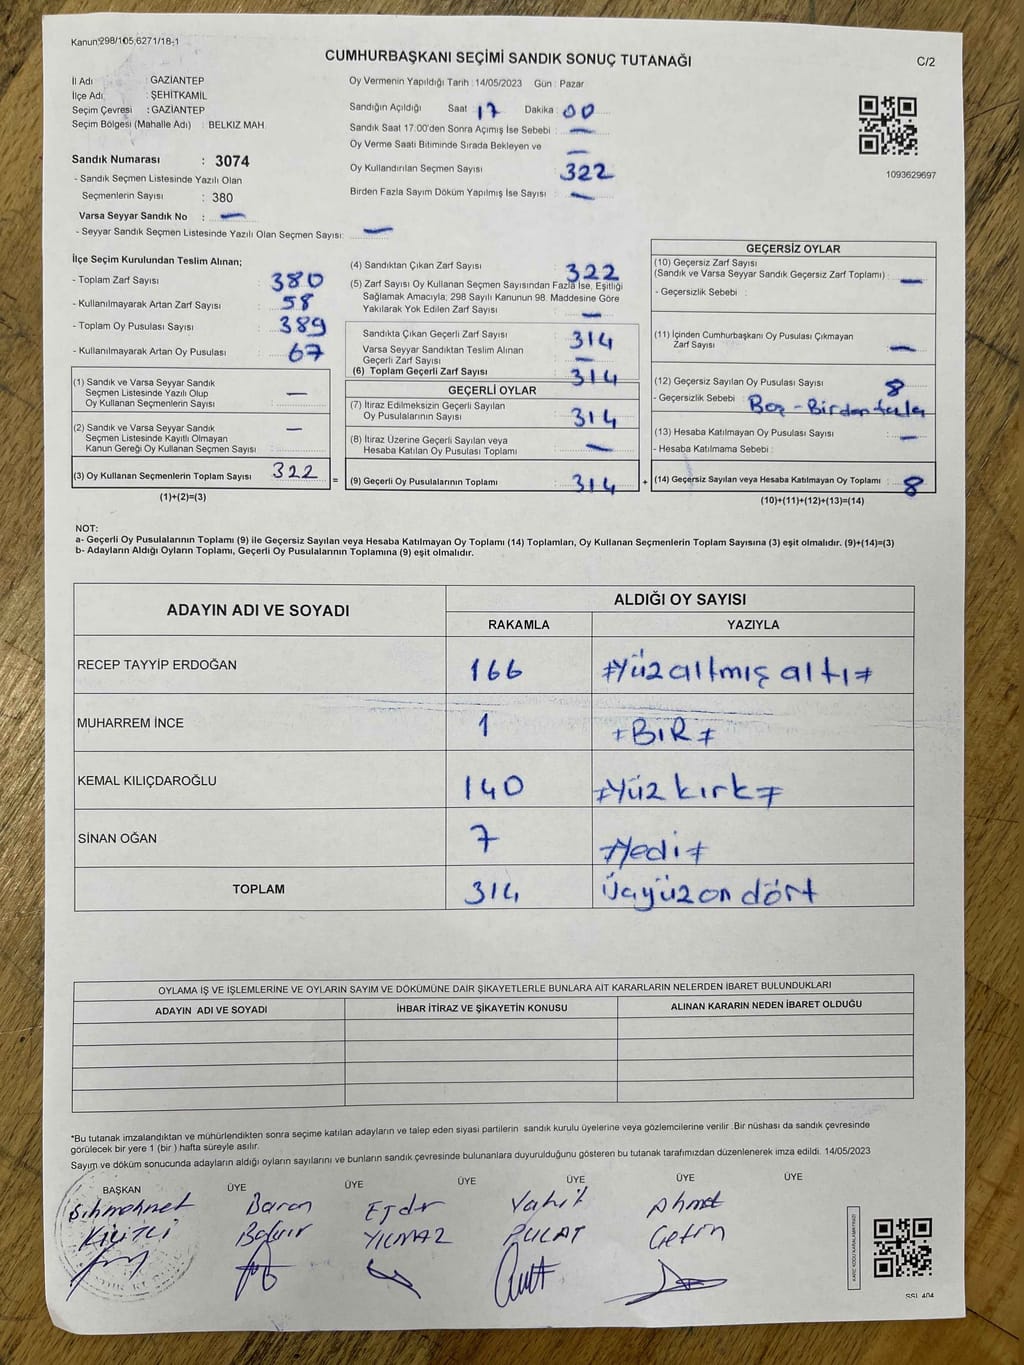 Kanun:298/105,6271/18-1
CUMHURBAŞKANI SEÇİMİ SANDIK SONUÇ TUTANAĞI
C/2
İl Adı : GAZİANTEP
İlçe Adı : ŞEHİTKAMİL
Seçim Çevresi : GAZİANTEP
Seçim Bölgesi (Mahalle Adı) : BELKIZ MAH.
Oy Vermenin Yapıldığı Tarih : 14/05/2023 Gün : Pazar
Sandığın Açıldığı Saat : 17 Dakika : 00
Sandık Saat 17:00'den Sonra Açımış İse Sebebi : —
Oy Verme Saati Bitiminde Sırada Bekleyen ve —
Oy Kullandırılan Seçmen Sayısı 322
Birden Fazla Sayım Döküm Yapılmış İse Sayısı : —
1093629697
Sandık Numarası : 3074
- Sandık Seçmen Listesinde Yazılı Olan
Seçmenlerin Sayısı : 380
Varsa Seyyar Sandık No : —
- Seyyar Sandık Seçmen Listesinde Yazılı Olan Seçmen Sayısı: —
İlçe Seçim Kurulundan Teslim Alınan;
- Toplam Zarf Sayısı : 380
- Kullanılmayarak Artan Zarf Sayısı : 58
- Toplam Oy Pusulası Sayısı : 389
- Kullanılmayarak Artan Oy Pusulası : 67
(1) Sandık ve Varsa Seyyar Sandık
Seçmen Listesinde Yazılı Olup
Oy Kullanan Seçmenlerin Sayısı : —
(2) Sandık ve Varsa Seyyar Sandık
Seçmen Listesinde Kayıtlı Olmayan
Kanun Gereği Oy Kullanan Seçmen Sayısı : —
(3) Oy Kullanan Seçmenlerin Toplam Sayısı : 322
(1)+(2)=(3)
=
(4) Sandıktan Çıkan Zarf Sayısı : 322
(5) Zarf Sayısı Oy Kullanan Seçmen Sayısından Fazla İse, Eşitliği
Sağlamak Amacıyla; 298 Sayılı Kanunun 98. Maddesine Göre
Yakılarak Yok Edilen Zarf Sayısı : —
Sandıkta Çıkan Geçerli Zarf Sayısı : 314
Varsa Seyyar Sandıktan Teslim Alınan
Geçerli Zarf Sayısı : —
(6) Toplam Geçerli Zarf Sayısı : 314
GEÇERLİ OYLAR
(7) İtiraz Edilmeksizin Geçerli Sayılan
Oy Pusulalarının Sayısı : 314
(8) İtiraz Üzerine Geçerli Sayılan veya
Hesaba Katılan Oy Pusulası Toplamı : —
(9) Geçerli Oy Pusulalarının Toplamı : 314
+
GEÇERSİZ OYLAR
(10) Geçersiz Zarf Sayısı
(Sandık ve Varsa Seyyar Sandık Geçersiz Zarf Toplamı) : —
- Geçersizlik Sebebi :
(11) İçinden Cumhurbaşkanı Oy Pusulası Çıkmayan
Zarf Sayısı : —
(12) Geçersiz Sayılan Oy Pusulası Sayısı : 8
- Geçersizlik Sebebi : Boş - Birden fazla
(13) Hesaba Katılmayan Oy Pusulası Sayısı : —
- Hesaba Katılmama Sebebi :
(14) Geçersiz Sayılan veya Hesaba Katılmayan Oy Toplamı : 8
(10)+(11)+(12)+(13)=(14)
NOT:
a- Geçerli Oy Pusulalarının Toplamı (9) ile Geçersiz Sayılan veya Hesaba Katılmayan Oy Toplamı (14) Toplamları, Oy Kullanan Seçmenlerin Toplam Sayısına (3) eşit olmalıdır. (9)+(14)=(3)
b- Adayların Aldığı Oyların Toplamı, Geçerli Oy Pusulalarının Toplamına (9) eşit olmalıdır.
ADAYIN ADI VE SOYADI
ALDIĞI OY SAYISI
RAKAMLA YAZIYLA
RECEP TAYYİP ERDOĞAN 166 #Yüz altmış altı#
MUHARREM İNCE 1 #BİR#
KEMAL KILIÇDAROĞLU 140 #Yüz kırk#
SİNAN OĞAN 7 #Yedi#
TOPLAM 314 Üçyüz on dört
OYLAMA İŞ VE İŞLEMLERİNE VE OYLARIN SAYIM VE DÖKÜMÜNE DAİR ŞİKAYETLERLE BUNLARA AİT KARARLARIN NELERDEN İBARET BULUNDUKLARI
ADAYIN ADI VE SOYADI İHBAR İTİRAZ VE ŞİKAYETİN KONUSU ALINAN KARARIN NEDEN İBARET OLDUĞU
*Bu tutanak imzalandıktan ve mühürlendikten sonra seçime katılan adayların ve talep eden siyasi partilerin sandık kurulu üyelerine veya gözlemcilerine verilir .Bir nüshası da sandık çevresinde
görülecek bir yere 1 (bir ) hafta süreyle asılır.
Sayım ve döküm sonucunda adayların aldığı oyların sayılarını ve bunların sandık çevresinde bulunanlara duyurulduğunu gösteren bu tutanak tarafımızdan düzenlenerek imza edildi. 14/05/2023
BAŞKAN ÜYE ÜYE ÜYE ÜYE ÜYE ÜYE
Baran Vahit Ahmet
YILMAZ PULAT Çetin